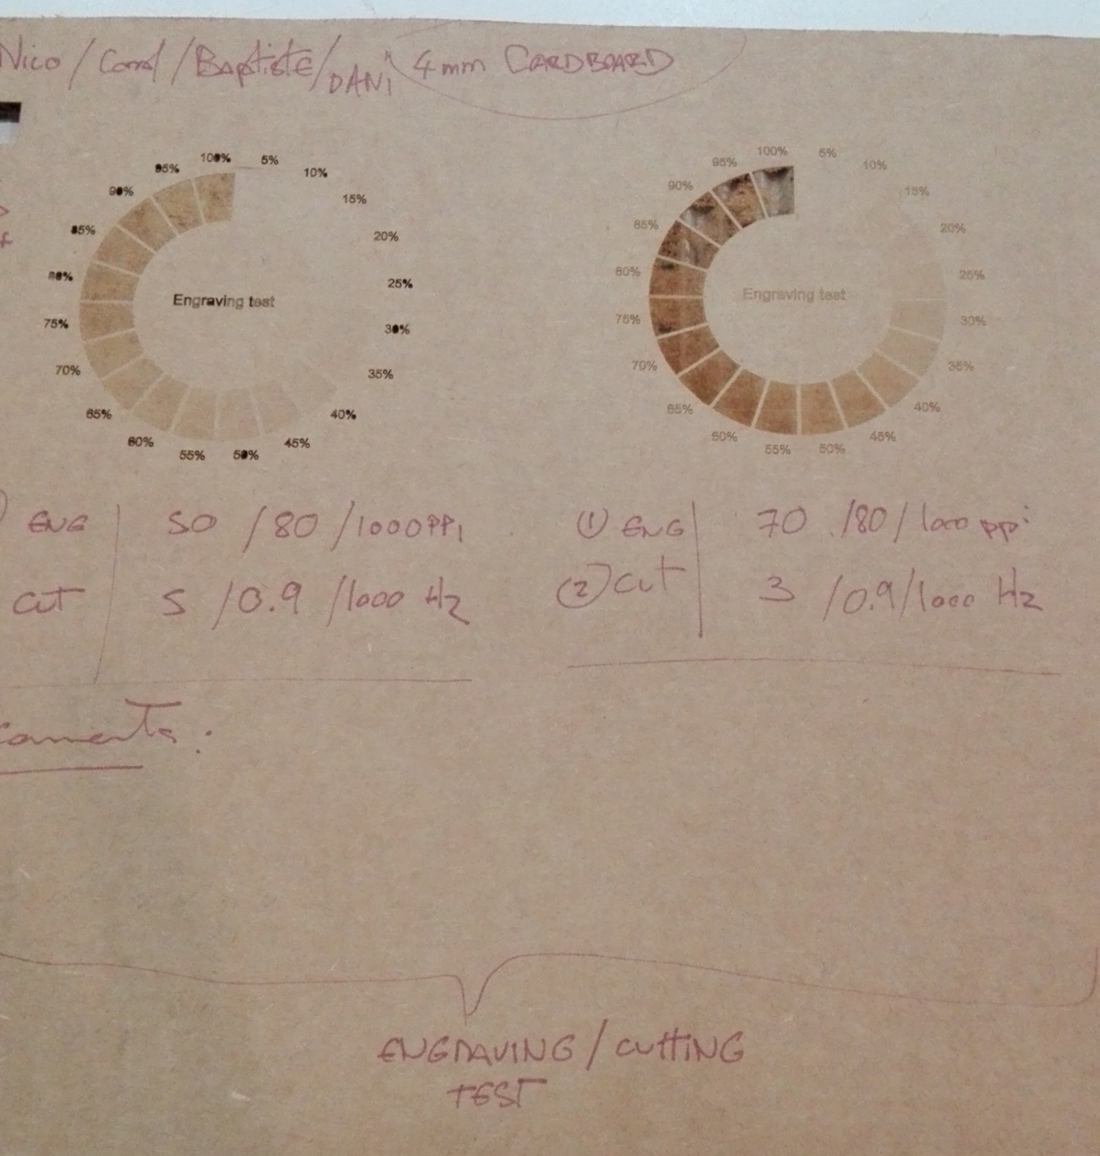 Nico / Coral / Baptiste / DANi 4mm CARDBOARD
100% 5%
95% 10%
90% 15%
85% 20%
80% 25%
Engraving test
75% 30%
70% 35%
65% 40%
60% 45%
55% 50%
100% 5%
95% 10%
90% 15%
85% 20%
80% 25%
Engraving test
75% 30%
70% 35%
65% 40%
60% 45%
55% 50%
ENG 50 /80 /1000PPi
CUT 5 /0.9 /1000 Hz
(1) ENG 70 /80/1000 ppi
(2) CUT 3 /0.9/1000 Hz
ENGRAVING / CUTTING
TEST